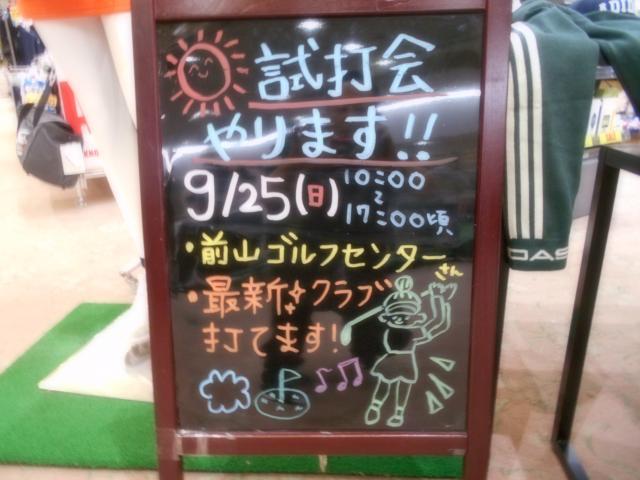 試打会
やります!!
9/25(日) 10:00
～
17:00頃
・前山ゴルフセンター
さん
・最新クラブ
打てます!